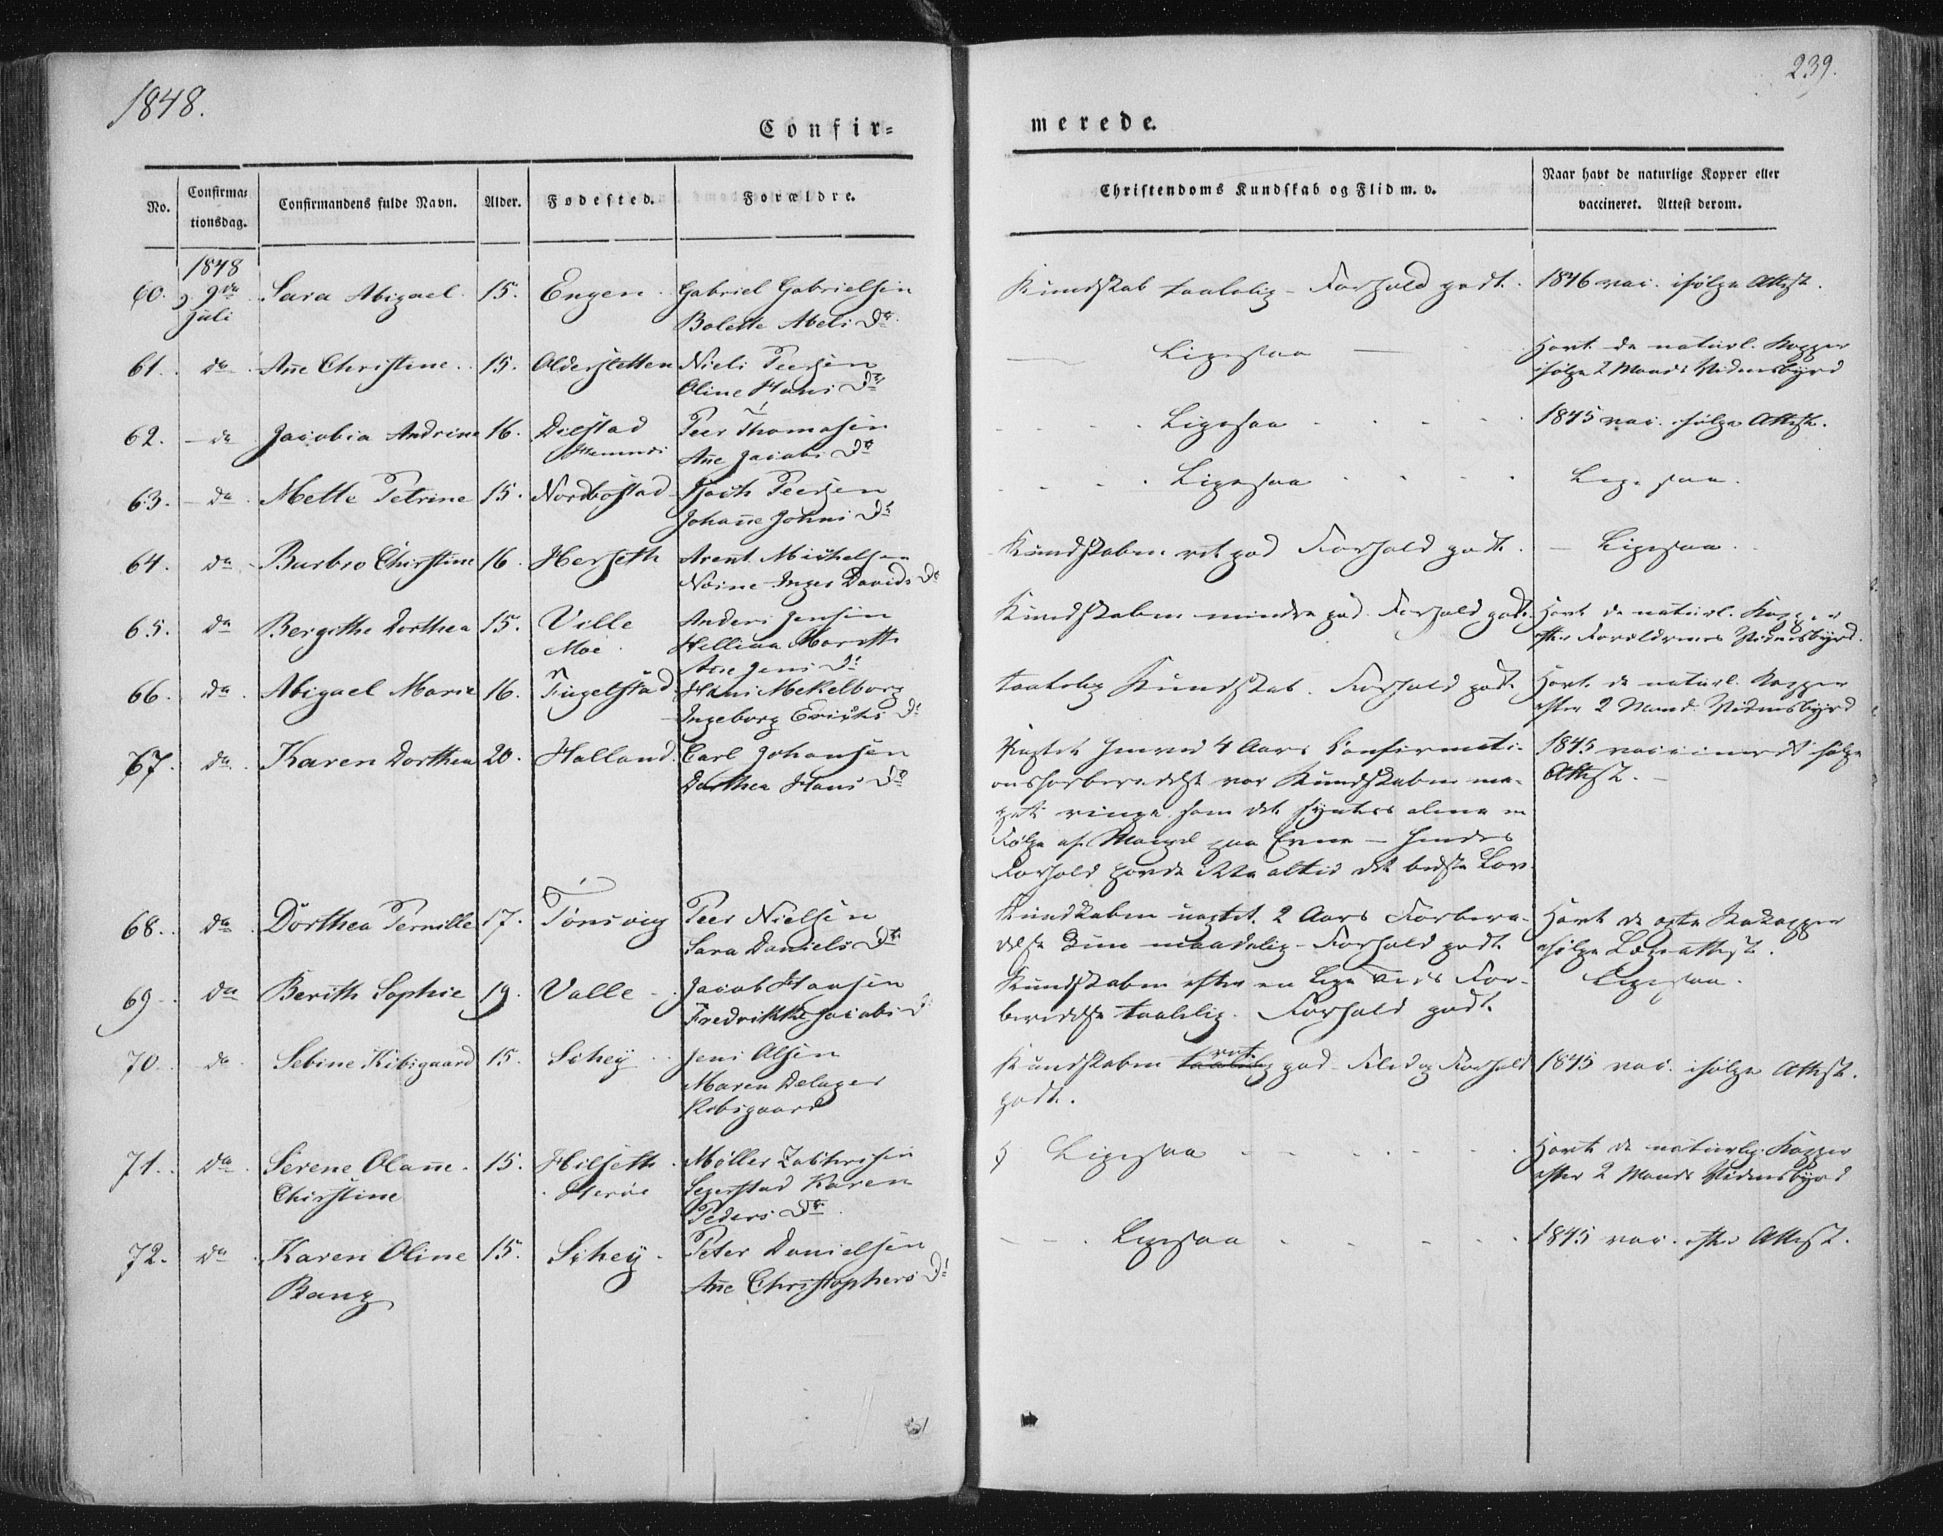 1848.
239.
Confir=
merede.
No.
Confirma=
tionsdag.
Confirmandens fulde Navn.
Alder.
Fødested.
Forældre.
Christendoms Kundskab og Flid m. v.
Naar havt de naturlige Kopper eller
vaccineret. Attest derom.
1848
60. 9de Sara Abigael. 15. Engen. Gabriel Gabrielsen Kundskab taalelig - Forhold godt. 1846 vac. ifølge Attest.
Juli Bolette Abels Dr.
61. do Ane Christine. 15. Alderstetten Niels Peersen Ligesaa Havt de naturl. Kopper
Oline Hans Dr ifølge 2 Mænds Vidnesbyrd
62. do Jacobia Andrine 16. Peer Thomasen Ligesaa 1845 vac. ifølge Attest.
Ane Jacobs Dr
63. do Mette Petrine 15. Nordbostad Peersen Ligesaa Ligesaa.
Johane Johns Dr
64. do Barbro Christine 16. Herseth Arent Michelsen Kundskaben ret god Forhold godt. Ligesaa.
Inger Davids Dr
65. do Bergithe Dorthea 15. Anders Jensen Kundskaben mindre god. Forhold godt. Havt de naturl. Kopper
Moe. efter Forældrenes Vidnesbyrd.
Ane Jens Dr
66. do Abigael Marie 16. Tingelstad Hans Mekelborg taalelig Kundskab. Forhold godt. Havt de naturl. Kopper
Ingeborg Erichs Dr efter 2 Mænds Vidnesbyrd
67. do Karen Dorthea 20. Halland. Carl Johansen Uagtet henved 4 Aars Confirmati- 1845 vaccineret ifølge
Dorthea Hans Dr onsforberedelse var Kundskaben me- Attest.
get ringe som det syntes alene en
Følge af Mangel paa Evne - hendes
Forhold havde altid det bedste Lov.
68. do Dorthea Pernille 17. Tønsvig Peer Nielsen Kundskaben uagtet 2 Aars Forbere- Havt de
Sara Daniels Dr delse kun maadelig - Forhold godt. ifølge Lægeattest.
69. do Berith Sophie 19. Valle Jacob Hansen Kundskaben efter en lige For- Ligesaa.
Fredrikke Jacobs D beredelse taalelig. Forhold godt.
70. do Sebine Kibsgaard 15. Schey Jens Olsen Kundskaben taalelig ret god - Flid og Forhold 1845 vac. ifølge Attest.
Maren Delager godt.
Kibsgaard
71. do Serene Olane. 15. Hilseth Møller Ligesaa Havt de naturlig. Kopper
Christine Herøe Karen efter 2 Mænds Vidnesbyrd
Peders Dr.
72. do Karen Oline 15. Schey. Peter Danielsen Ligesaa 1845 vac. efter Attest.
Bang Ane Christophers Dr